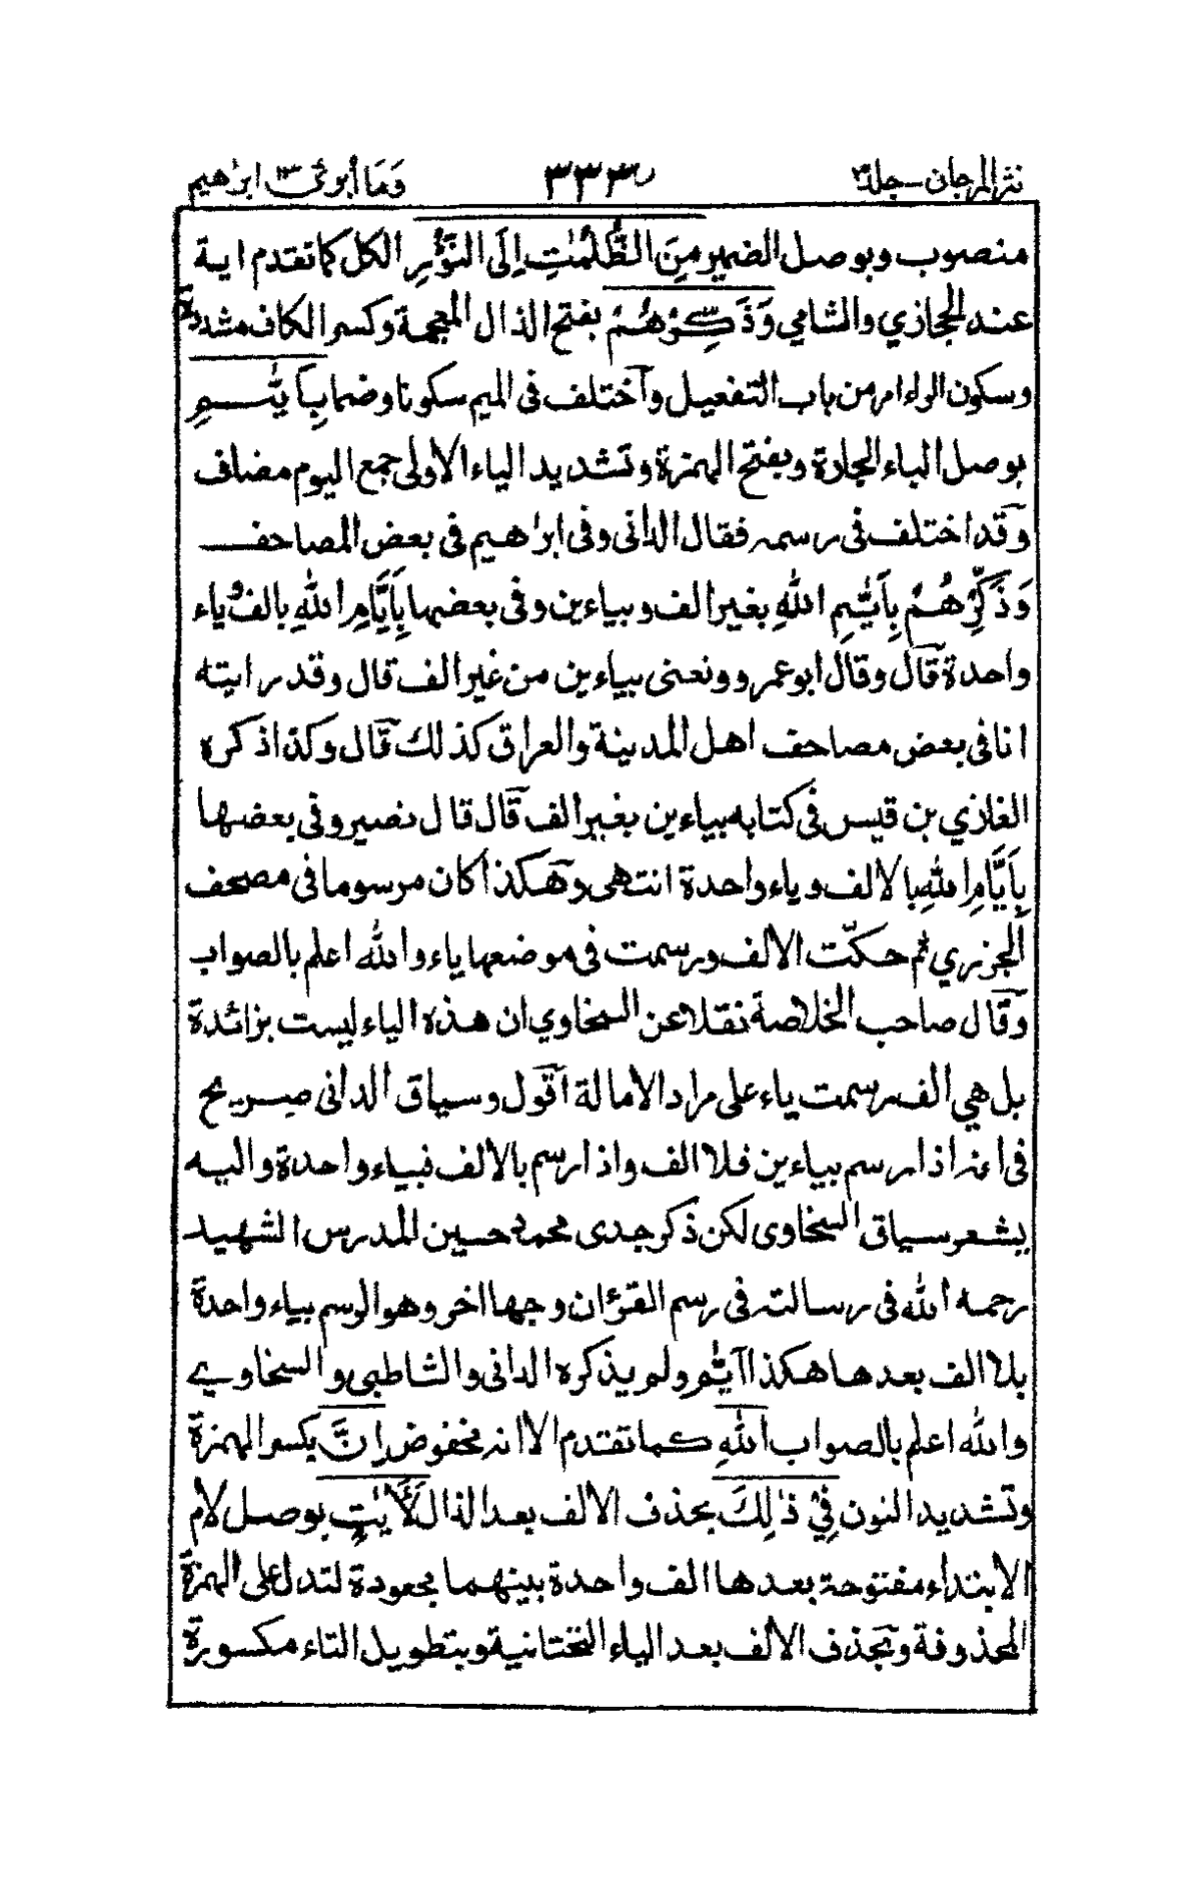 نثر المرجان – جلد ٣ ٣٣٣ وَمَا أُبَرِّئُ ١٣ ابرٰهيم
منصوب وبوصل الضمير مِنَ الظُّلُمٰتِ إِلَى النُّوْرِ الكل كما تقدم اية
عند الحجازي والشامي وَذَكِّرْهُمْ بفتح الذال المعجمة وكسر الكاف مشددة
وسكون الراء امر من باب التفعيل وآختلف فى الميم سكونا وضما بِاَيّٰىمِ
بوصل الباء الجارة وبفتح الهمزة وتشديد الياء الاولى جمع اليوم مضاف
وقد اختلف فى رسمه فقال الدانى وفى ابرٰهيم فى بعض المصاحف
وَذَكِّرْهُمْ بِاَيّٰىمِ اللّٰهِ بغير الف وبياءين وفى بعضها بِاَيَّامِ اللّٰهِ بالف وياء
واحدة قال وقال ابو عمرو ونعنى بياءين من غير الف قال وقد رايته
انا فى بعض مصاحف اهل المدينة والعراق كذلك قال وكذا ذكره
الغازي بن قيس فى كتابه بياءين بغير الف قال قال نصير وفى بعضها
بِاَيَّامِ اللّٰهِ بالالف وياء واحدة انتهى وهكذا كان مرسوما فى مصحف
الجزري ثم حكّت الالف ورسمت فى موضعها ياء والله اعلم بالصواب
وقال صاحب الخلاصة نقلا عن السخاوي ان هذه الياء ليست بزائدة
بل هي الف رسمت ياء على مراد الامالة اقول وسياق الدانى صريح
فى انه اذا رسم بياءين فلا الف واذا رسم بالالف فبياء واحدة واليه
يشعر سياق السخاوى لكن ذكر جدى محمد حسين المدرس الشهيد
رحمه الله فى رسالته فى رسم القرءان وجها اخر وهو الرسم بياء واحدة
بلا الف بعدها هكذا اَيّٰم ولم يذكره الدانى والشاطبى والسخاوي
والله اعلم بالصواب اللّٰهِ كما تقدم الا انه مخفوض إِنَّ بكسر الهمزة
وتشديد النون فِيْ ذٰلِكَ بحذف الالف بعد الذال لَاٰيٰتٍ بوصل لام
الابتداء مفتوحة بعدها الف واحدة بينهما مجعودة لتدل على الهمزة
المحذوفة وبحذف الالف بعد الياء التحتانية وبتطويل التاء مكسورة